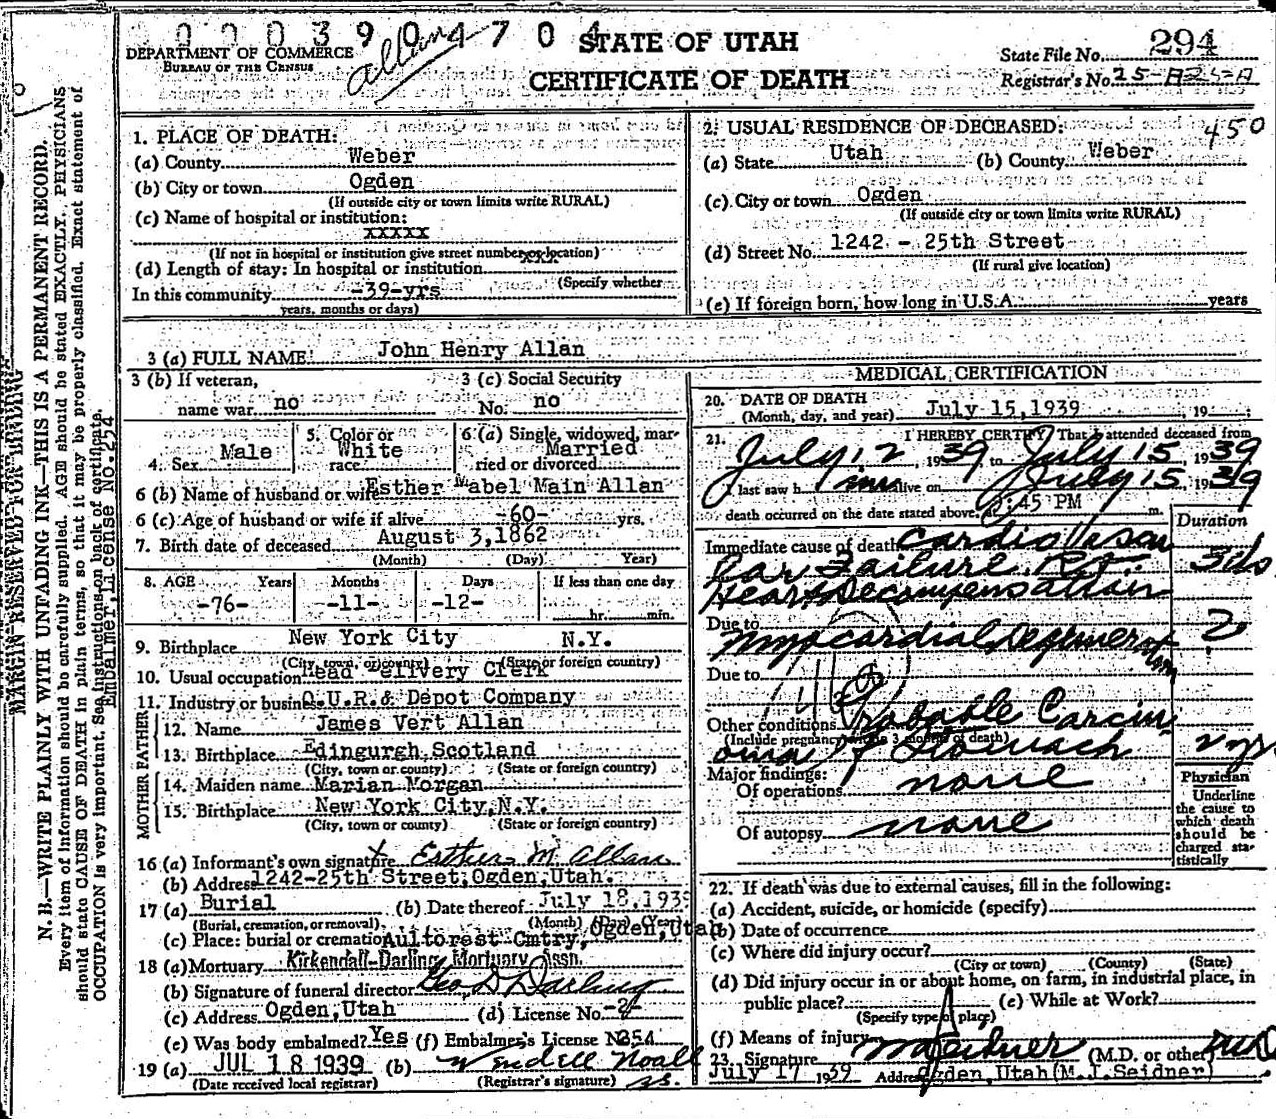 0003904704
allan
STATE OF UTAH
DEPARTMENT OF COMMERCE
BUREAU OF THE CENSUS
CERTIFICATE OF DEATH
State File No. 294
Registrar's No. 25-A25-A
450
N. B.—WRITE PLAINLY WITH UNFADING INK—THIS IS A PERMANENT RECORD.
Every item of information should be carefully supplied. AGE should be stated EXACTLY. PHYSICIANS
should state CAUSE OF DEATH in plain terms, so that it may be properly classified. Exact statement of
OCCUPATION is very important. See instructions on back of certificate.
MARGIN RESERVED FOR BINDING
Embalmer License No. 254
1. PLACE OF DEATH:
(a) County Weber
(b) City or town Ogden
(If outside city or town limits write RURAL)
(c) Name of hospital or institution:
xxxxx
(If not in hospital or institution give street number or location)
(d) Length of stay: In hospital or institution
(Specify whether
In this community -39-yrs
years, months or days)
2. USUAL RESIDENCE OF DECEASED:
(a) State Utah (b) County Weber
(c) City or town Ogden
(If outside city or town limits write RURAL)
(d) Street No. 1242 - 25th Street
(If rural give location)
(e) If foreign born, how long in U.S.A. years
3 (a) FULL NAME: John Henry Allan
3 (b) If veteran, name war no
3 (c) Social Security No. no
4. Sex Male
5. Color or race White
6 (a) Single, widowed, married or divorced Married
6 (b) Name of husband or wife Esther Mabel Main Allan
6 (c) Age of husband or wife if alive -60- yrs.
7. Birth date of deceased August 3,1862
(Month) (Day) Year)
8. AGE Years Months Days If less than one day
-76- -11- -12- hr. min.
9. Birthplace New York City N.Y.
(City, town, or county) (State or foreign country)
10. Usual occupation Head Delivery Clerk
11. Industry or business O.U.R.& Depot Company
FATHER
12. Name James Vert Allan
13. Birthplace Edingurgh,Scotland
(City, town or county) (State or foreign country)
MOTHER
14. Maiden name Marian Morgan
15. Birthplace New York City,N.Y.
(City, town or county) (State or foreign country)
16 (a) Informant's own signature x Esther M Allan
(b) Address 1242-25th Street,Ogden,Utah.
17 (a) Burial (b) Date thereof July 18,1939
(Burial, cremation, or removal) (Month) (Day) (Year)
(c) Place: burial or cremation Aultorest Cmtry, Ogden,Utah
18 (a) Mortuary Kirkendall-Darling Mortuary Assn.
(b) Signature of funeral director Geo D Darling
(c) Address Ogden,Utah (d) License No. -2-
(e) Was body embalmed? Yes (f) Embalmer's License No. 254
19 (a) JUL 18 1939 (b) Wendell Noall
(Date received local registrar) (Registrar's signature)
MEDICAL CERTIFICATION
20. DATE OF DEATH
(Month, day, and year) July 15,1939 , 19 ;
21. I HEREBY CERTIFY That I attended deceased from
July 12 1939 to July 15 1939
I last saw him alive on July 15, 1939
death occurred on the date stated above, at :45 PM m.
Duration
Immediate cause of death Cardio Vascu
lar Failure Rt. 3ds
Heart Decompensation
Due to
Myocardial Degeneration ?
Due to
Other conditions Probable Carcin
(Include pregnancy within 3 months of death)
oma of Stomach 2 yrs
Major findings:
Of operations none
Of autopsy none
Physician
Underline
the cause to
which death
should be
charged sta-
tistically
22. If death was due to external causes, fill in the following:
(a) Accident, suicide, or homicide (specify)
(b) Date of occurrence
(c) Where did injury occur?
(City or town) (County) (State)
(d) Did injury occur in or about home, on farm, in industrial place, in
public place? (e) While at Work?
(Specify type of place)
(f) Means of injury
23. Signature MJSeidner (M.D. or other) MD
July 17 1939 Address Ogden, Utah(M.J.Seidner)